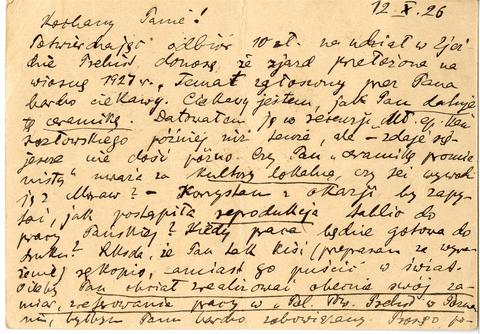 12 X. 26
Kochany Panie!
Potwierdzając odbiór 10 zł. na udział w Zjeź-
dzie Prehist. donoszę, że zjazd przełożono na
wiosnę 1927 r. Temat zgłoszony przez Pana
bardzo ciekawy. Ciekawy jestem, jak Pan datuje
tę ceramikę. Datowałem ją w recenzji
Kozłowskiego później niż tenże, ale – zdaje się
jeszcze nie dość późno. Czy Pan „ceramikę promie
nistą" uważa za kulturę lokalną, czy też wywo
ją z Moraw? – Korzystam z okazji, by zapy-
tać, jak postąpiła reprodukcja tablic do
pracy Pańskiej? Kiedy praca będzie gotowa do
druku? Szkoda, że Pan tak kisi (przepraszam za wyra-
żenie) rękopis, zamiast go puścić w świat.
Pan chciał zrealizować obecnie swój za-
miar, wydrukowania pracy w
niu, byłbym Panu bardzo zobowiązany. Proszę